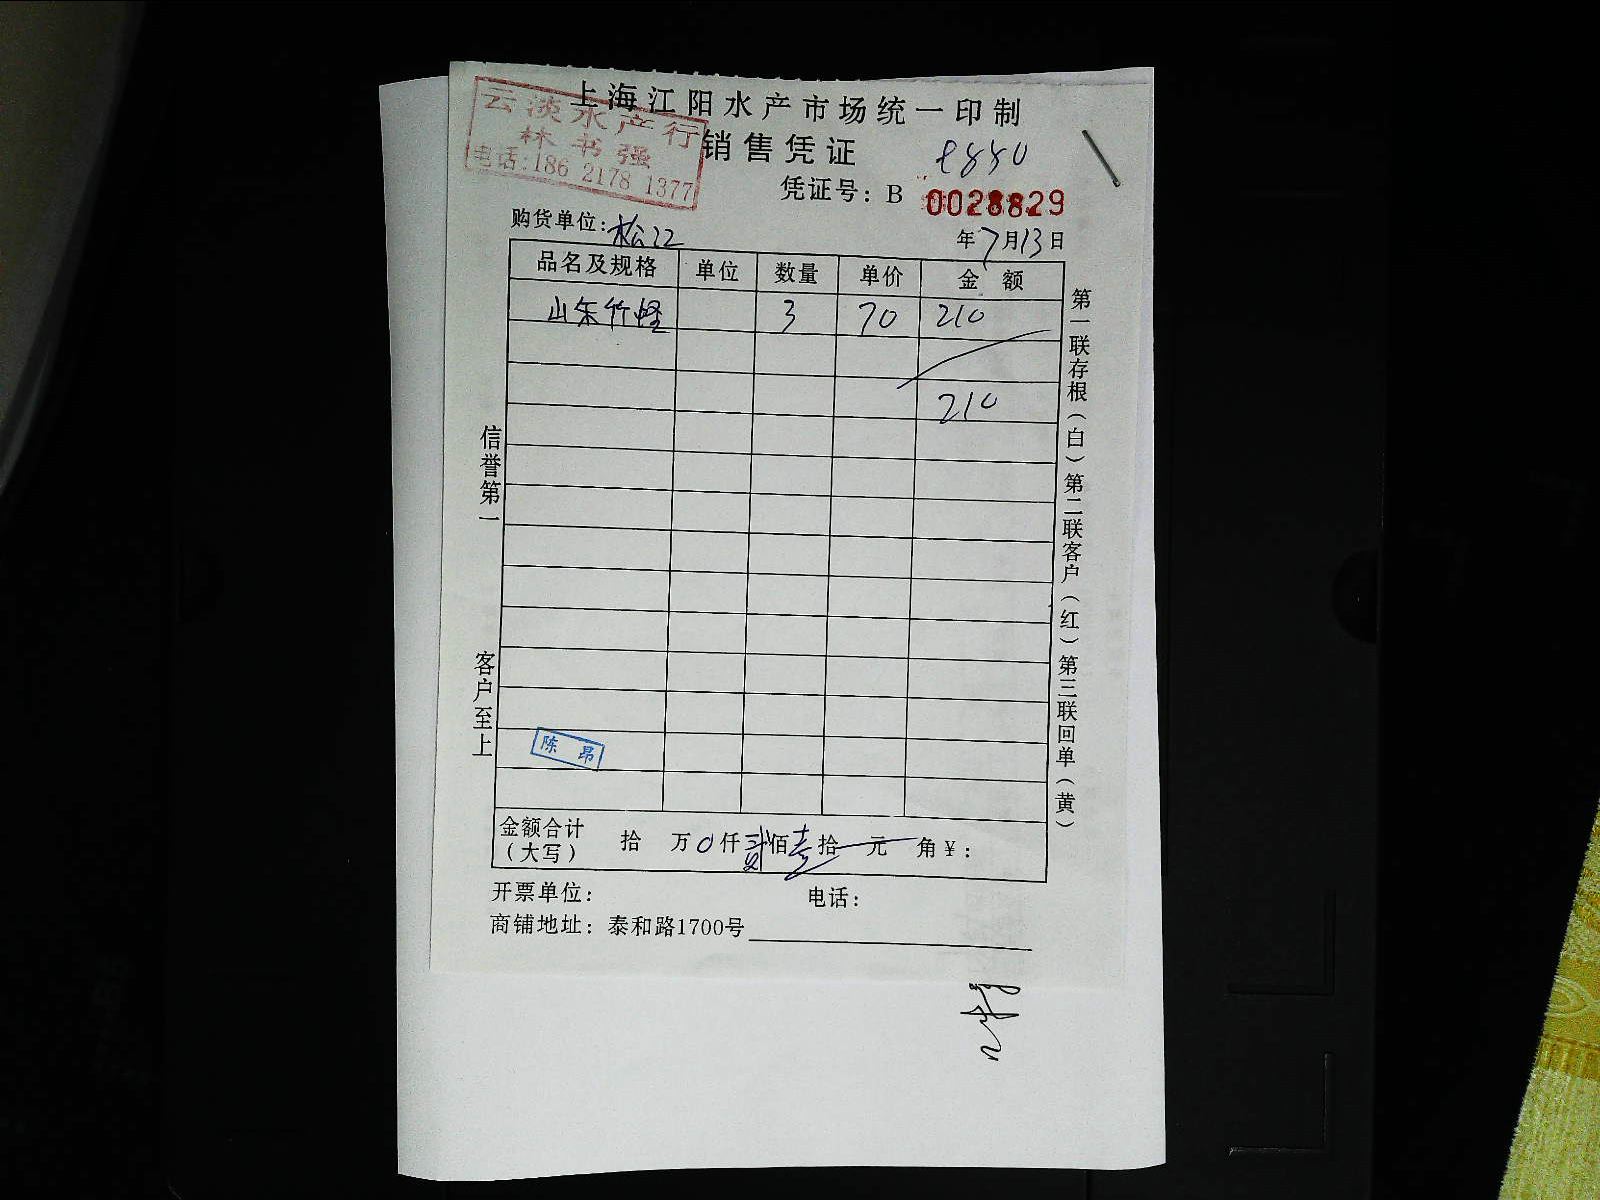 上海江阳水产市场统一印制
云淡水产行
林书强
电话:186 2178 1377
销售凭证
凭证号: B 0028829
购货单位: 松江
年7月13日
品名及规格 单位 数量 单价 金额
山东竹蛏 3 70 210
210
信誉第一
客户至上
第一联存根(白)第二联客户(红)第三联回单(黄)
陈昂
金额合计(大写) 拾 万0仟贰佰壹拾 元 角¥:
开票单位: 电话:
商铺地址: 泰和路1700号